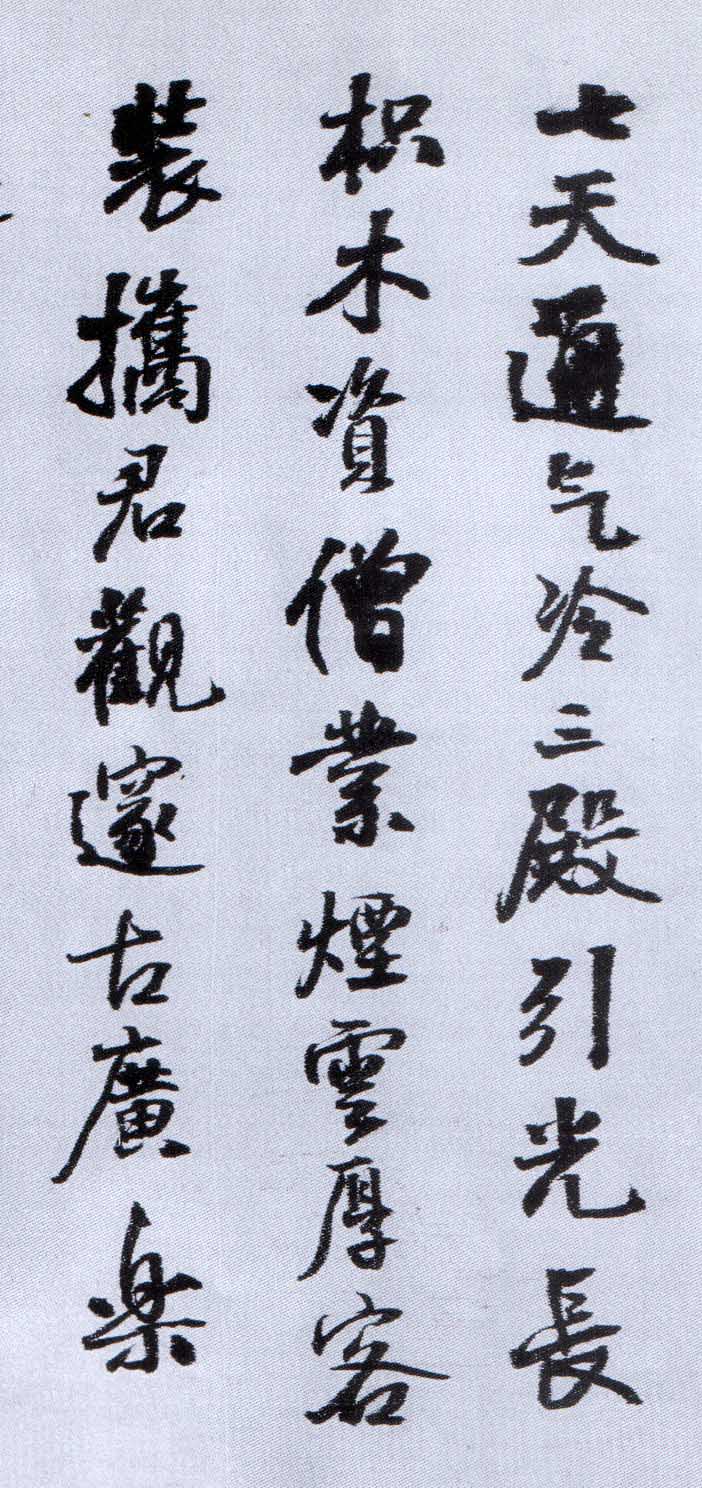 七天通气冷三殿引光長
枳木資僧業煙雲厚客
裝攜君觀邃古廣樂